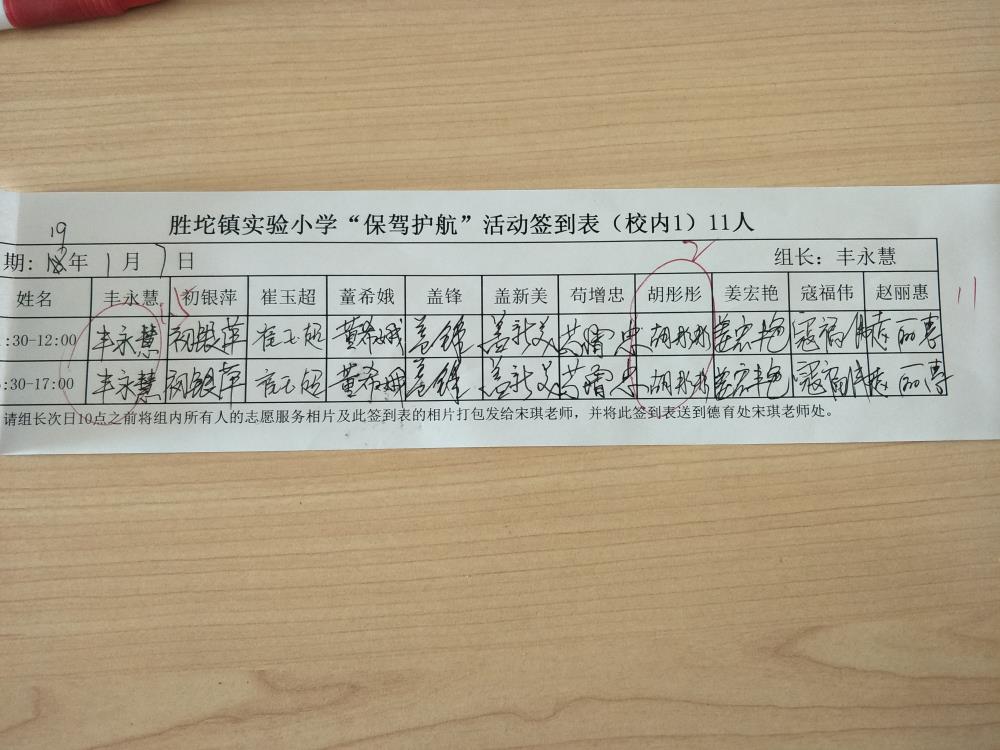 胜坨镇实验小学“保驾护航”活动签到表（校内1）11人
19
期: 年 1 月 7 日 组长：丰永慧
姓名 丰永慧 初银萍 崔玉超 董希娥 盖锋 盖新美 苟增忠 胡彤彤 姜宏艳 寇福伟 赵丽惠 11
:30-12:00 丰永慧 初银萍 崔玉超 董希娥 盖锋 盖新美 苟增忠 胡彤彤 姜宏艳 寇福伟 赵丽惠
:30-17:00 丰永慧 初银萍 崔玉超 董希娥 盖锋 盖新美 苟增忠 胡彤彤 姜宏艳 寇福伟 赵丽惠
请组长次日10点之前将组内所有人的志愿服务相片及此签到表的相片打包发给宋琪老师，并将此签到表送到德育处宋琪老师处。